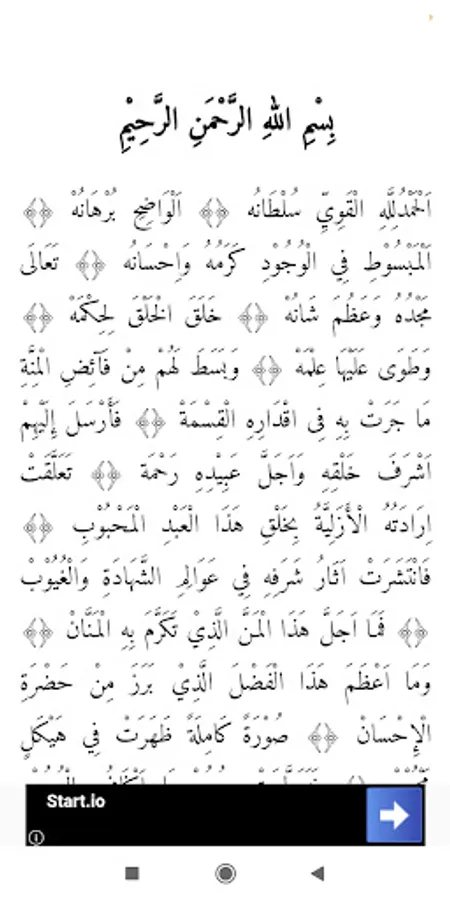 بِسْمِ اللهِ الرَّحْمَنِ الرَّحِيْمِ
اَلْحَمْدُلِلَّهِ الْقَوِيِّ سُلْطَانُه ﴿﴾ اَلْوَاضِحِ بُرْهَانُهْ ﴿﴾
اَلْمَبْسُوْطِ فِي الْوُجُوْدِ كَرَمُهُ وَاِحْسَانُه ﴿﴾ تَعَالَى
مَجْدُهُ وَعَظُمَ شَانُهْ ﴿﴾ خَلَقَ الْخَلْقَ لِحِكْمَهْ ﴿﴾
وَطَوَى عَلَيْهَا عِلْمَهْ ﴿﴾ وَبَسَطَ لَهُمْ مِنْ فَآئِضِ الْمِنَّةِ
مَا جَرَتْ بِهِ فِى اَقْدَارِهِ الْقِسْمَةْ ﴿﴾ فَأَرْسَلَ إِلَيْهِمْ
اَشْرَفَ خَلْقِهِ وَاَجَلَّ عَبِيْدِهِ رَحْمَة ﴿﴾ تَعَلَّقَتْ
اِرَادَتُهُ الْأَزَلِيَّةُ بِخَلْقِ هَذَا الْعَبْدِ الْمَحْبُوْبِ ﴿﴾
فَانْتَشَرَتْ اَثَارُ شَرَفِهِ فِي عَوَالِمِ الشَّهَادَةِ وَالْغُيُوْبْ
﴿﴾ فَمَا اَجَلَّ هَذَا الْمَنَّ الَّذِيْ تَكَرَّمَ بِهِ الْمَنَّانْ ﴿﴾
وَمَا اَعْظَمَ هَذَا الْفَضْلَ الَّذِيْ بَرَزَ مِنْ حَضْرَةِ
الْإِحْسَانْ ﴿﴾ صُوْرَةً كَامِلَةً ظَهَرَتْ فِي هَيْكَلٍ
Start.io